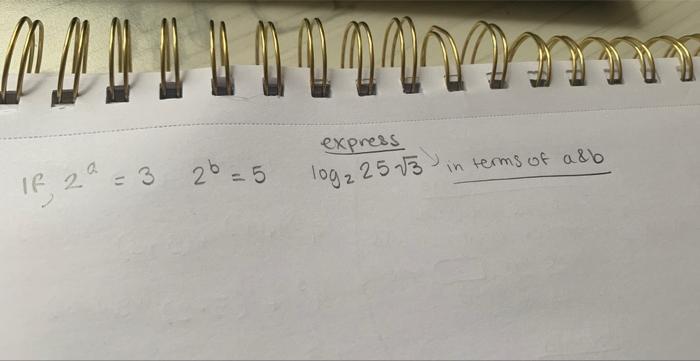 express
If, 2^a = 3 2^b = 5 log₂ 25√3 in terms of a&b